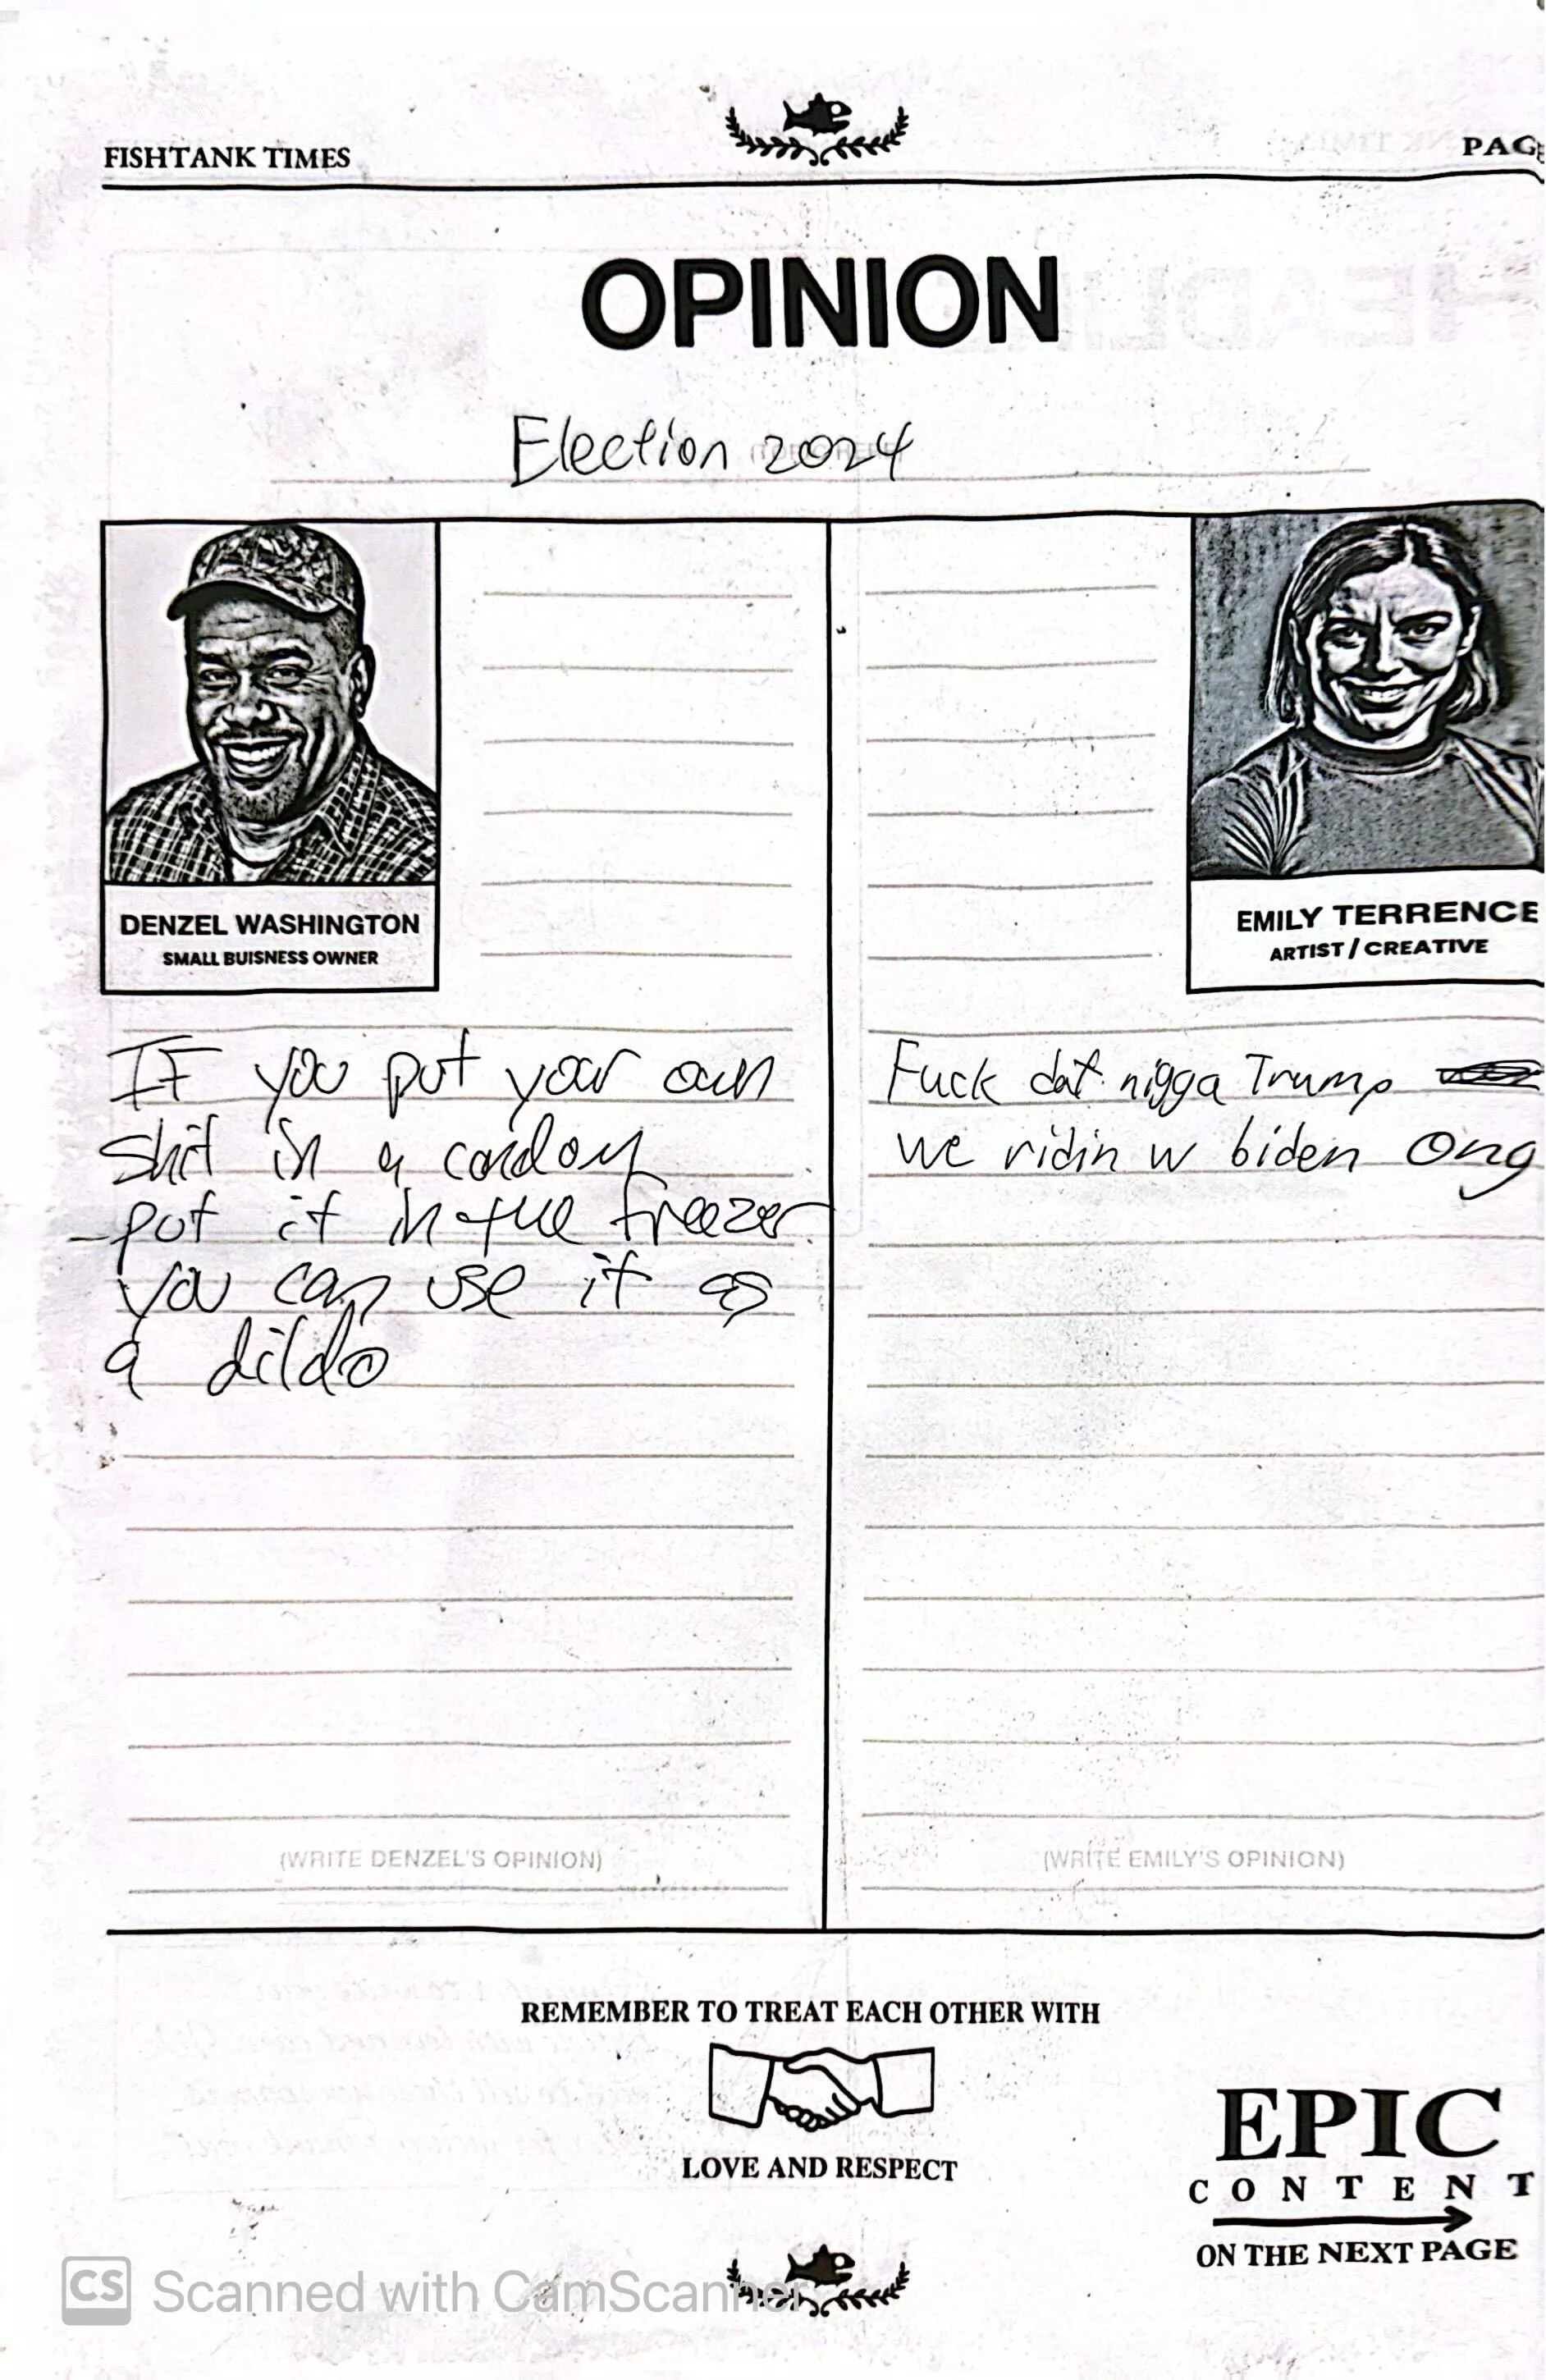 FISHTANK TIMES
PAGE
OPINION
Election 2024
DENZEL WASHINGTON
SMALL BUISNESS OWNER
If you put your own
shit in a condom
put it in the freezer
you can use it as
a dildo
(WRITE DENZEL'S OPINION)
EMILY TERRENCE
ARTIST / CREATIVE
Fuck dat nigga Trump
we ridin w biden Ong
(WRITE EMILY'S OPINION)
REMEMBER TO TREAT EACH OTHER WITH
LOVE AND RESPECT
EPIC
CONTENT
ON THE NEXT PAGE
CS Scanned with CamScanner